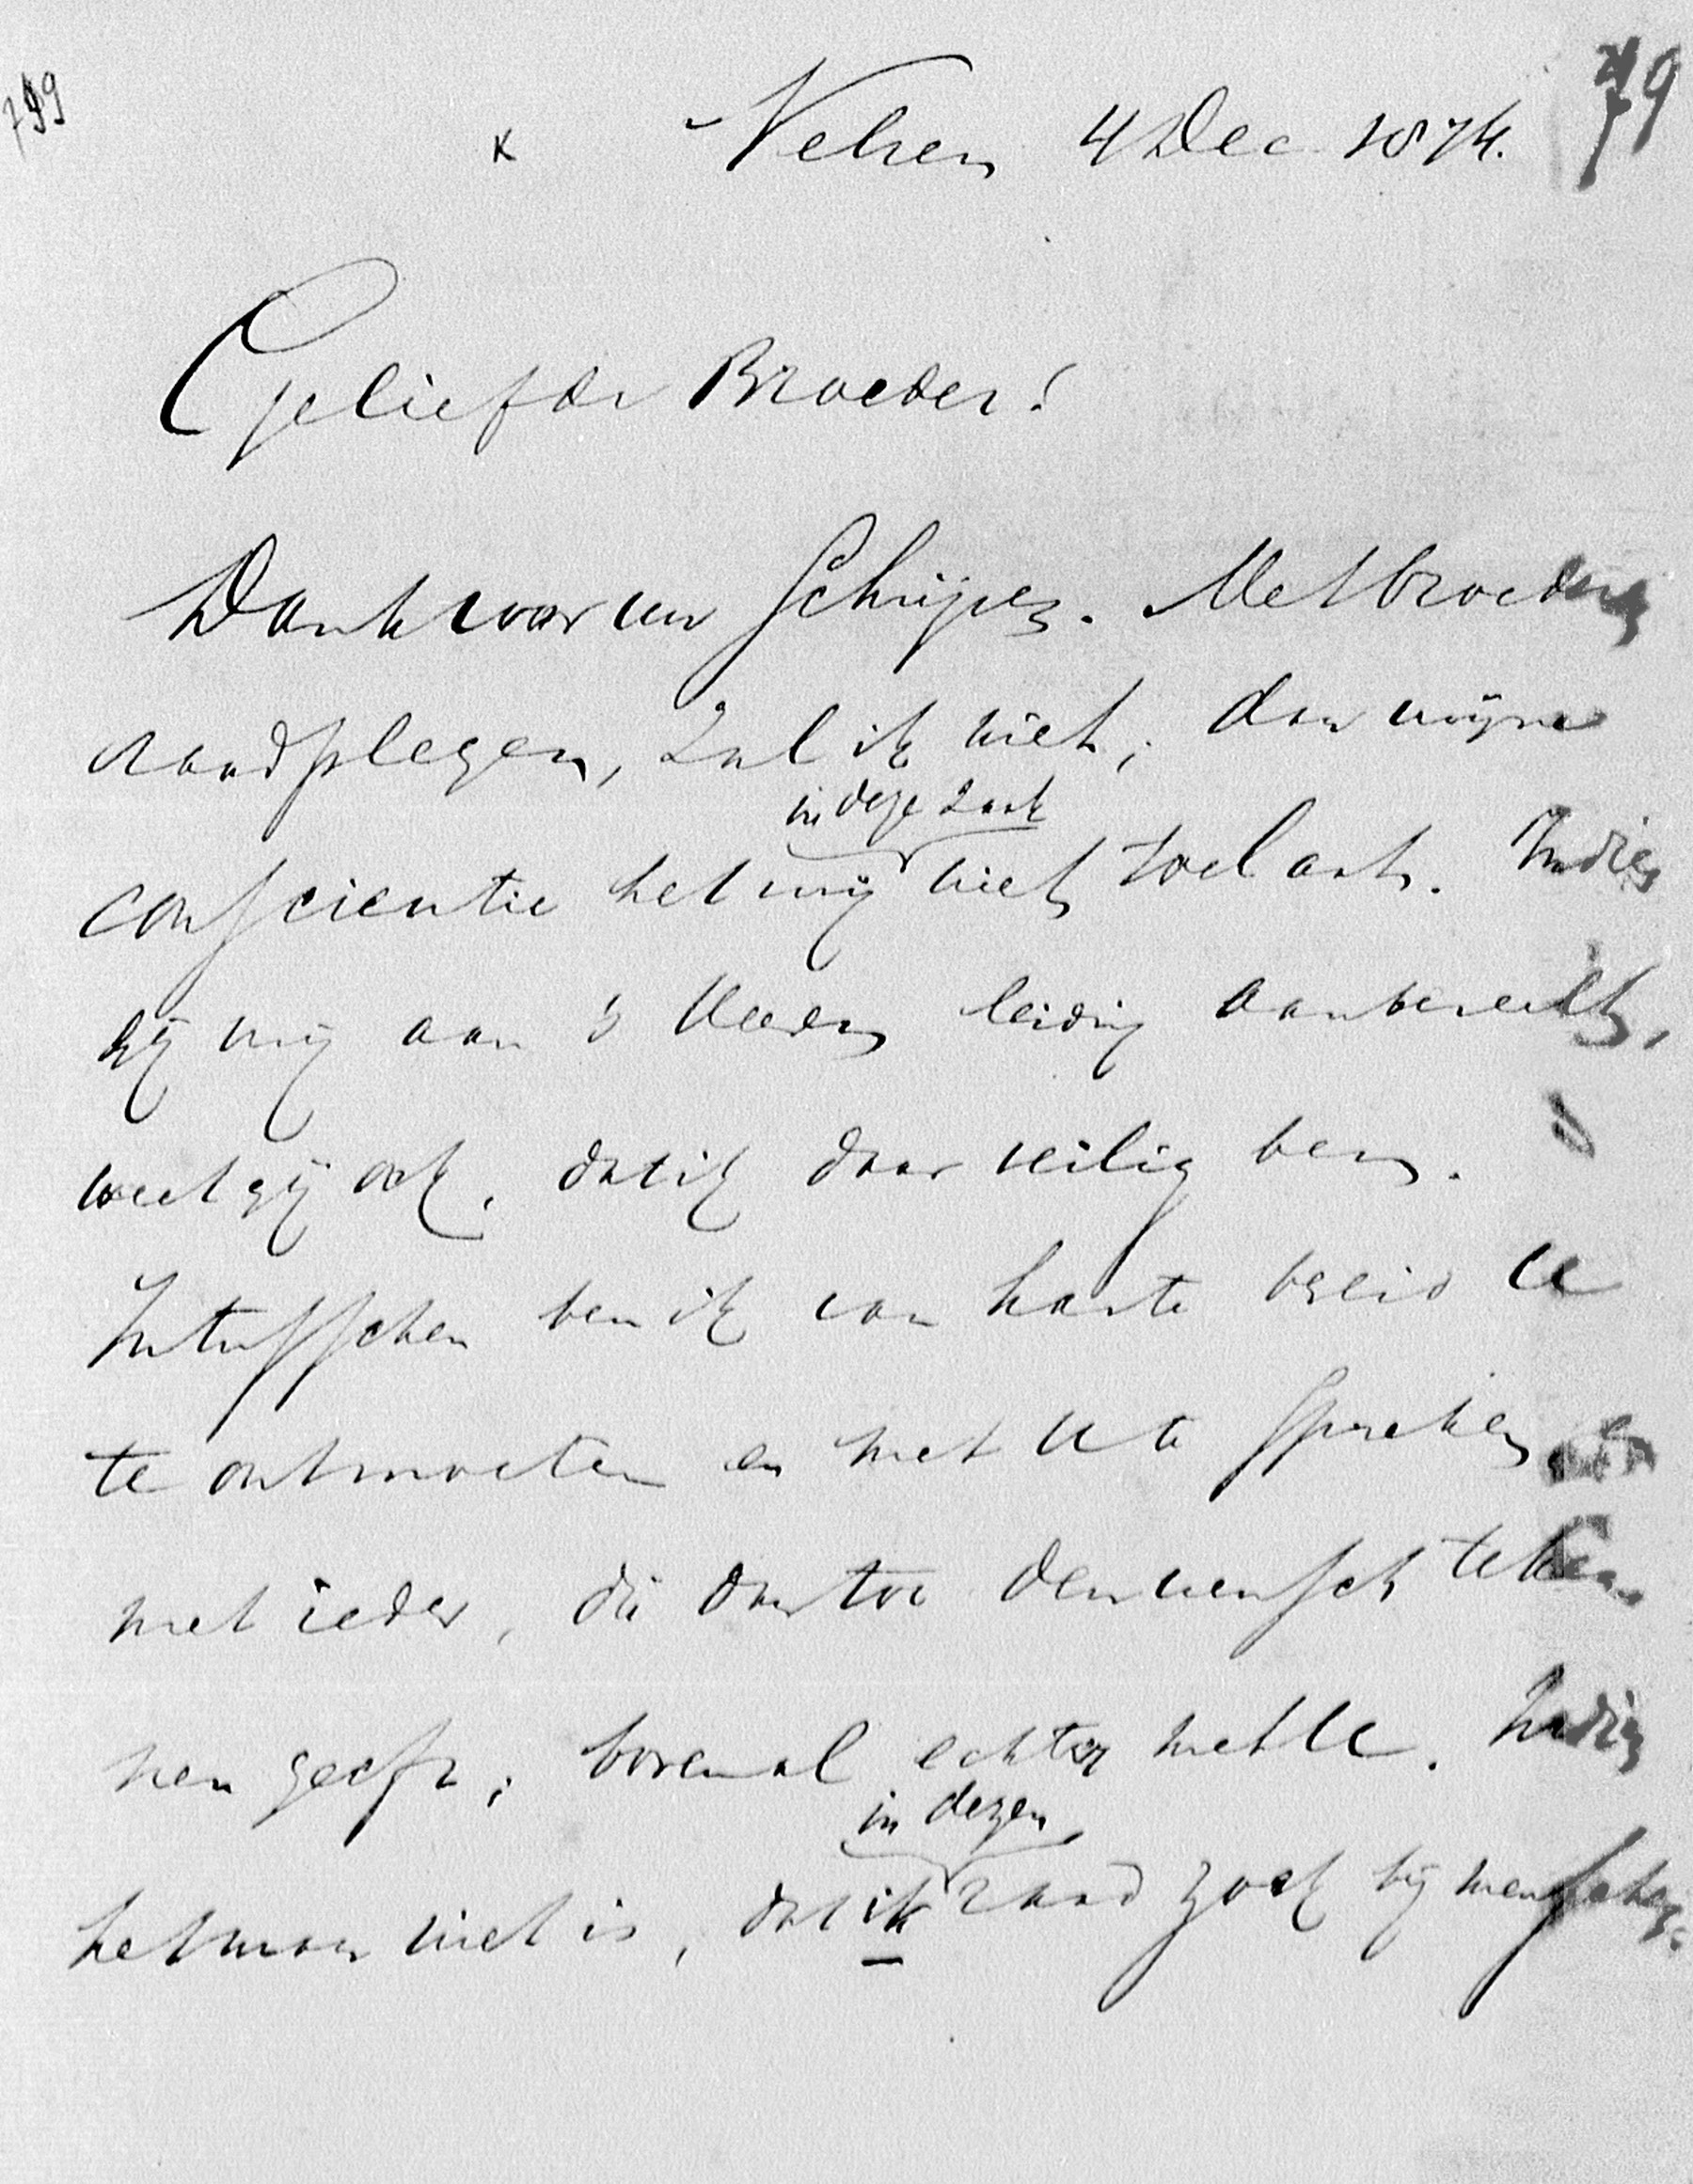 799
79
x Velsen 4 Dec 1874.
Geliefde Broeder!
Dank voor uw schrijven. Met broeders
raadplegen, zal ik niet; daar mijne
in deze zaak
conscientie het mij niet toelaat. Indien
gij mij aan 's Heeren leiding aanbeveelt,
weet gij ook, dat ik daar veilig ben.
Intusschen ben ik van harte bereid U
te ontmoeten en met U te spreken, en
met ieder, die daartoe den wensch te ken
nen geeft; bovenal echter met U. Indien
in dezen
het maar niet is, dat ik raad zoek bij menschen.